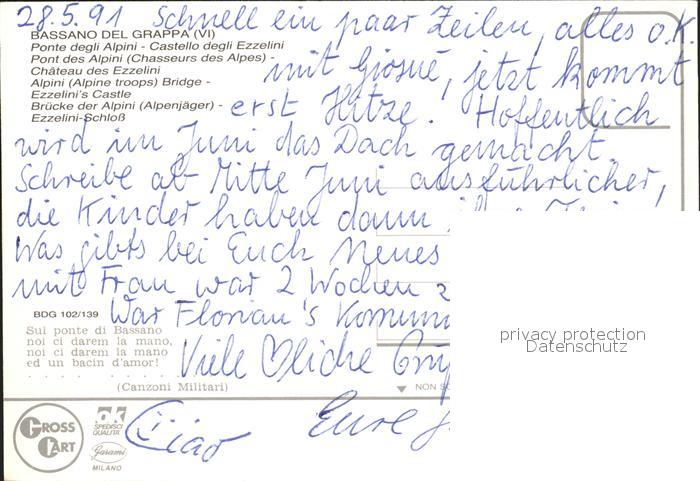 28.5.91 Schnell ein paar Zeilen, alles o.K.
BASSANO DEL GRAPPA (VI)
Ponte degli Alpini - Castello degli Ezzelini
Pont des Alpini (Chasseurs des Alpes) -
Château des Ezzelini
mit Giosué, jetzt kommt
Alpini (Alpine troops) Bridge -
Ezzelini's Castle
Brücke der Alpini (Alpenjäger) -
Ezzelini-Schloß
erst Hitze! Hoffentlich
wird im Juni das Dach gemacht.
Schreibe ab Mitte Juni ausführlicher,
die Kinder haben dann
Was gibts bei Euch Neues
mit Frau war 2 Wochen
BDG 102/139
War Florian's
Sul ponte di Bassano
noi ci darem la mano,
noi ci darem la mano
ed un bacin d'amor!
. . . . . . . . . .
(Canzoni Militari)
privacy protection
Datenschutz
Viele ♡liche
NON
GROSS CART
OK
SPEDISCI
QUALITÀ
Garami
MILANO
Ciao
Eure